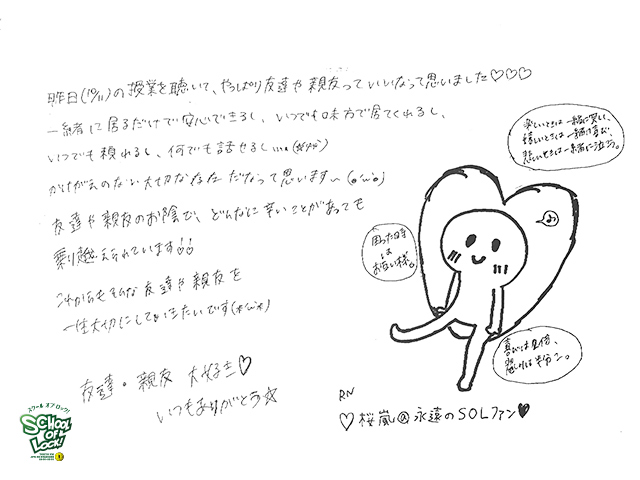 昨日(10/11)の授業を聴いて、やっぱり友達や親友っていいなって思いました♡♡♡
一緒に居るだけで安心できるし、いつでも味方で居てくれるし、
いつでも頼れるし、何でも話せるし…
かけがえのない大切な存在だなって思います～(o^^o)
友達や親友のお陰で、どんなに辛いことがあっても
乗り越えられています!!
これからもそんな友達や親友を
一生大切にしていきたいです
友達・親友 大好き♡
いつもありがとう☆
楽しいときは一緒に笑い、
嬉しいときは一緒に喜び、
悲しいときは一緒に泣う。
困った時
は
お互い様。
♪
喜びは2倍、
悲しみは半分こ。
RN
♡桜嵐@永遠のSOLファン♥
スクール オブ ロック!
SCHOOL
OF
LOCK!